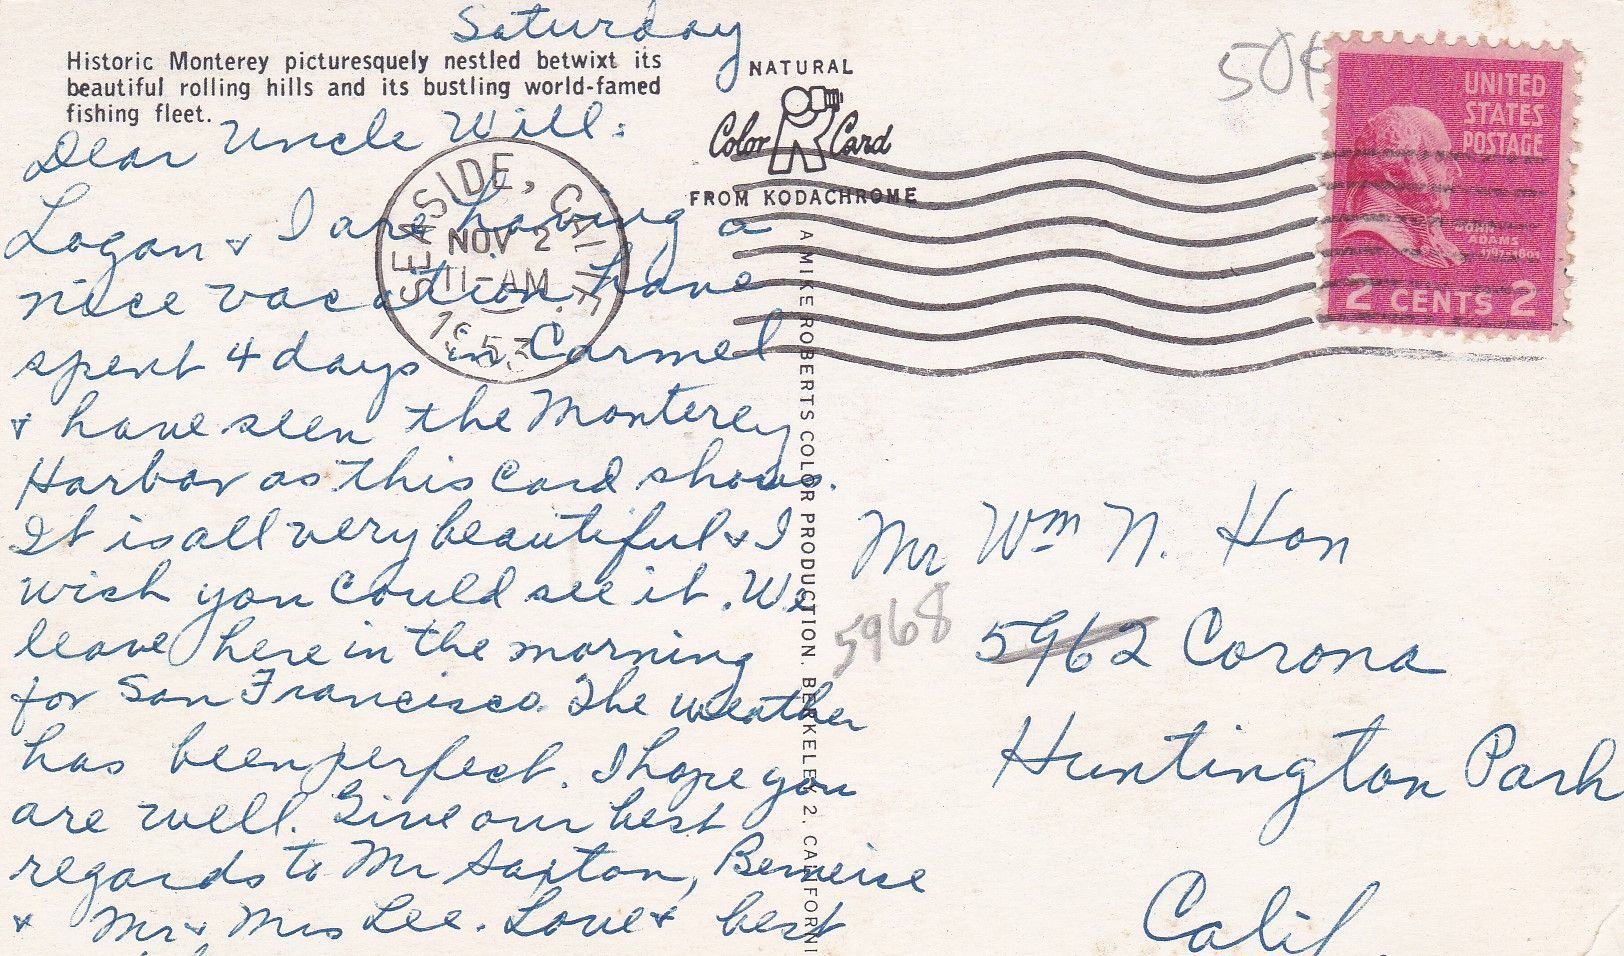 Saturday
Historic Monterey picturesquely nestled betwixt its
beautiful rolling hills and its bustling world-famed
fishing fleet.
Dear Uncle Will:
Logan & I are having a
nice vacation have
spent 4 days in Carmel
& have seen the Monterey
Harbor as this Card shows.
It is all very beautiful & I
wish you could see it. We
leave here in the morning
for San Francisco. The weather
has been perfect. I hope you
are well. Give our best
regards to Mr Saxton, Berneice
& Mr & Mrs Lee. Love & best
NATURAL
Color Card
FROM KODACHROME
A MIKE ROBERTS COLOR PRODUCTION, BERKELEY 2, CALIFORNI
SEASIDE, CALIF.
NOV 2
11-AM
1953
50¢
UNITED
STATES
POSTAGE
JOHN
ADAMS
1797-1801
2 CENTS 2
Mr Wm N. Hon
5968 5962 Corona
Huntington Park
Calif